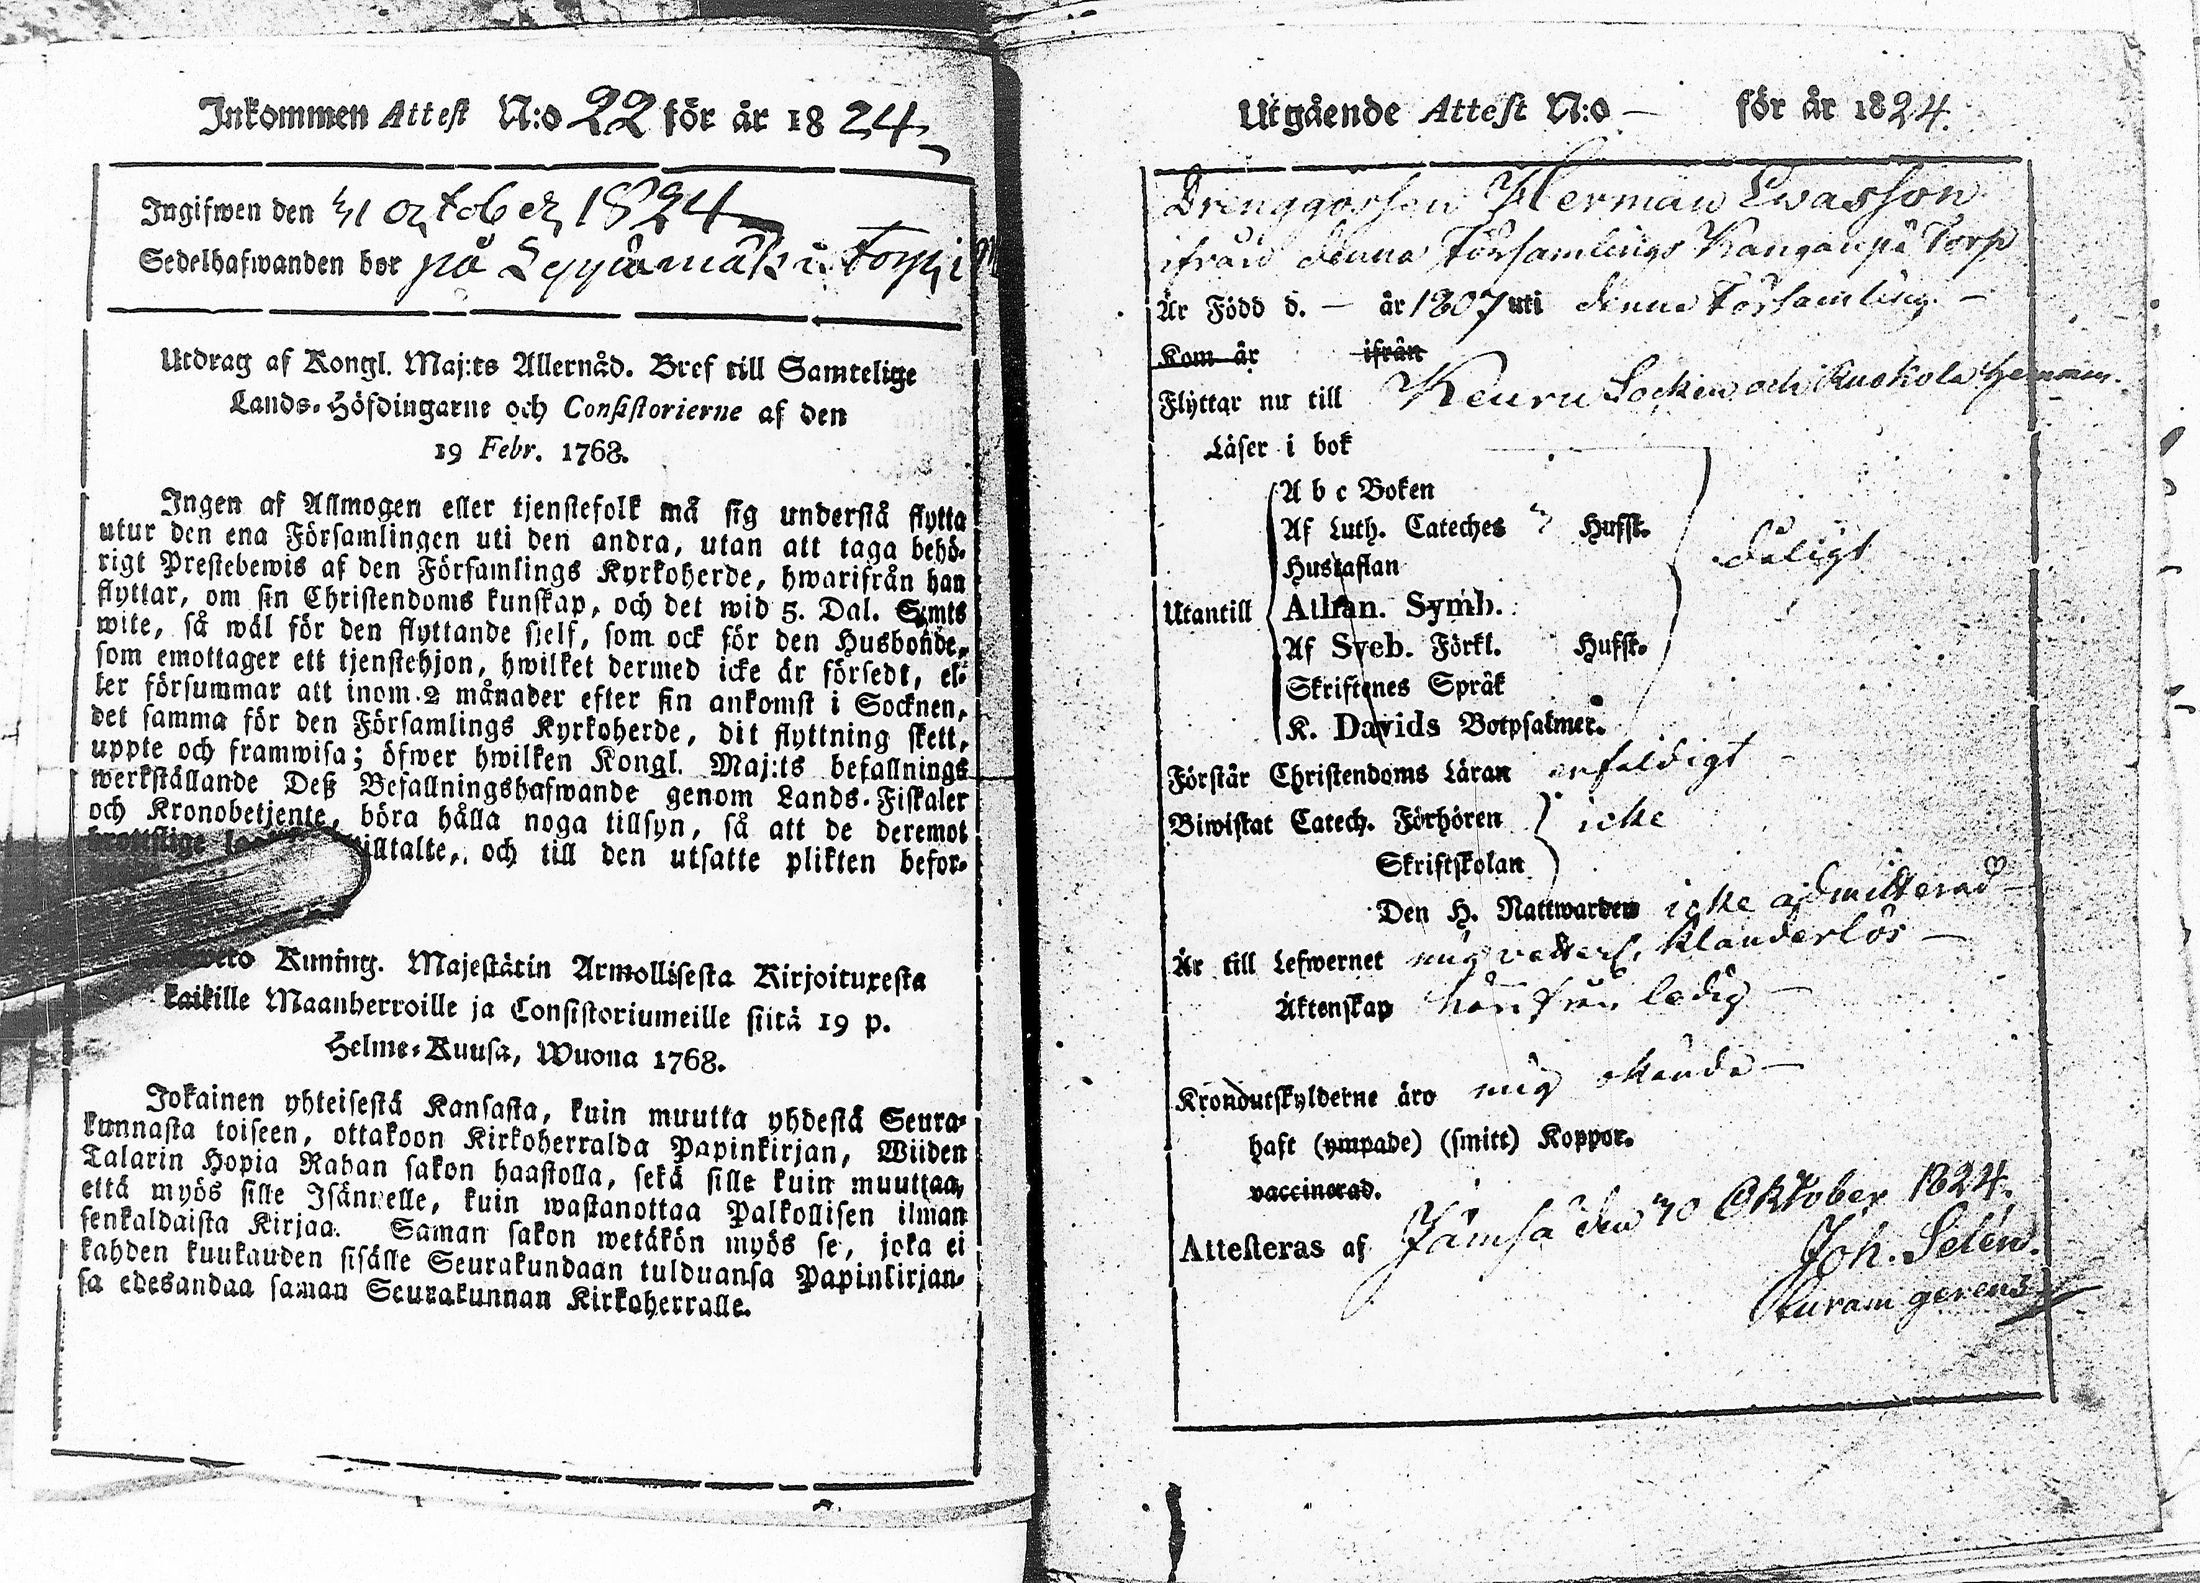 Inkommen Attest N:o 22 för år 1824
Ingifwen den 31 october 1824
Sedelhafwanden bor på Leppämäki torp i
Utdrag af Kongl. Maj:ts Allernåd. Bref till Samtelige
Lands-Höfdingarne och Consistorierne af den
19 Febr. 1768.
Ingen af Allmogen eller tjenstefolk må sig understå flytta
utur den ena Församlingen uti den andra, utan att taga behö-
rigt Prestebewis af den Församlings Kyrkoherde, hwarifrån han
flyttar, om sin Christendoms kunskap, och det wid 5. Dal. S:mts
wite, så wäl för den flyttande sjelf, som ock för den Husbonde,
som emottager ett tjenstehjon, hwilket dermed icke är försedt, el-
ler försummar att inom 2 månader efter sin ankomst i Socknen,
det samma för den Församlings Kyrkoherde, dit flyttning skett,
uppte och framwisa; öfwer hwilken Kongl. Maj:ts befallnings
werkställande Deß Befallningshafwande genom Lands-Fiskaler
och Kronobetjente, böra hålla noga tillsyn, så att de deremot
brottslige tilltalte, och till den utsatte plikten befor-
Kuning. Majestätin Armollisesta Kirjoituxesta
kaikille Maanherroille ja Consistoriumeille siitä 19 p.
Helme-Kuusa, Wuona 1768.
Jokainen yhteisestä Kansasta, kuin muutta yhdestä Seura-
kunnasta toiseen, ottakoon Kirkoherralda Papinkirjan, Wiiden
Talarin Hopia Rahan sakon haastolla, sekä sille kuin muuttaa,
että myös sille Isännelle, kuin wastanottaa Palkollisen ilman
senkaldaista Kirjaa. Saman sakon wetäkön myös se, joka ei
kahden kuukauden sisälle Seurakundaan tulduansa Papinkirjan-
sa edesandaa saman Seurakunnan Kirkoherralle.
Utgående Attest N:o — för år 1824.
Drenggossen Herman Evasson
ifrån denna Församlings Kanganpä Torp
Är Född d. — år 1807 uti denna Församling. —
Kom år ifrån
Flyttar nu till Keuru Socken och Ruokola Hemman.
Läser i bok
A b c Boken
Af Luth. Cateches Hufst.
Hustaflan
Utantill Athan. Symb.
Af Sveb. Förkl. Hufst.
Skriftenes Språk
K. Davids Botpsalmer.
dåligt
Förstår Christendoms Läran enfaldigt
Biwistat Catech. Förhören icke
Skriftskolan
Den H. Nattwarden icke admitterad —
Är till Lefwernet mig veterl. klanderlös —
Äktenskap härifrån ledig —
Kronoutskylderne äro mig okända —
haft (ympade) (smitt) Koppor.
vaccinerad.
Attesteras af Jämsä den 30 Oktober 1824.
Joh. Selén.
Curam gerens